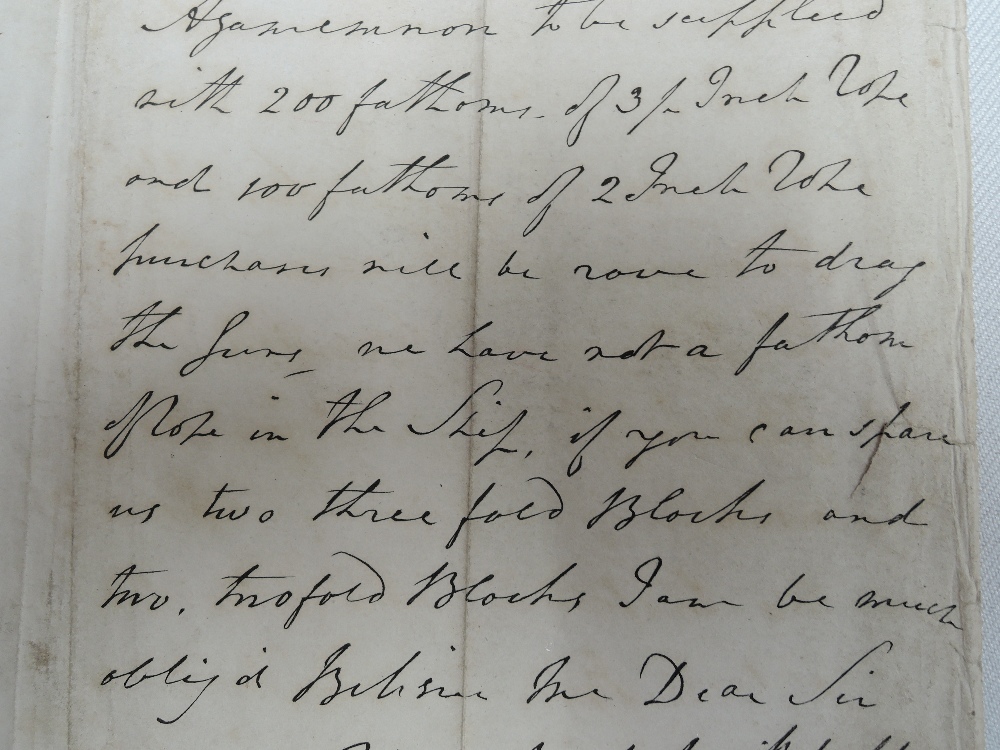 Agamemnon to be supplied
with 200 fathoms. of 3 1/2 Inch Rope
and 100 fathoms of 2 Inch Rope
purchases will be rove to drag
the Guns, we have not a fathom
of Rope in the Ship, if you can spare
us two three fold Blocks and
two, twofold Blocks I am be much
oblig'd Believe Me Dear Sir